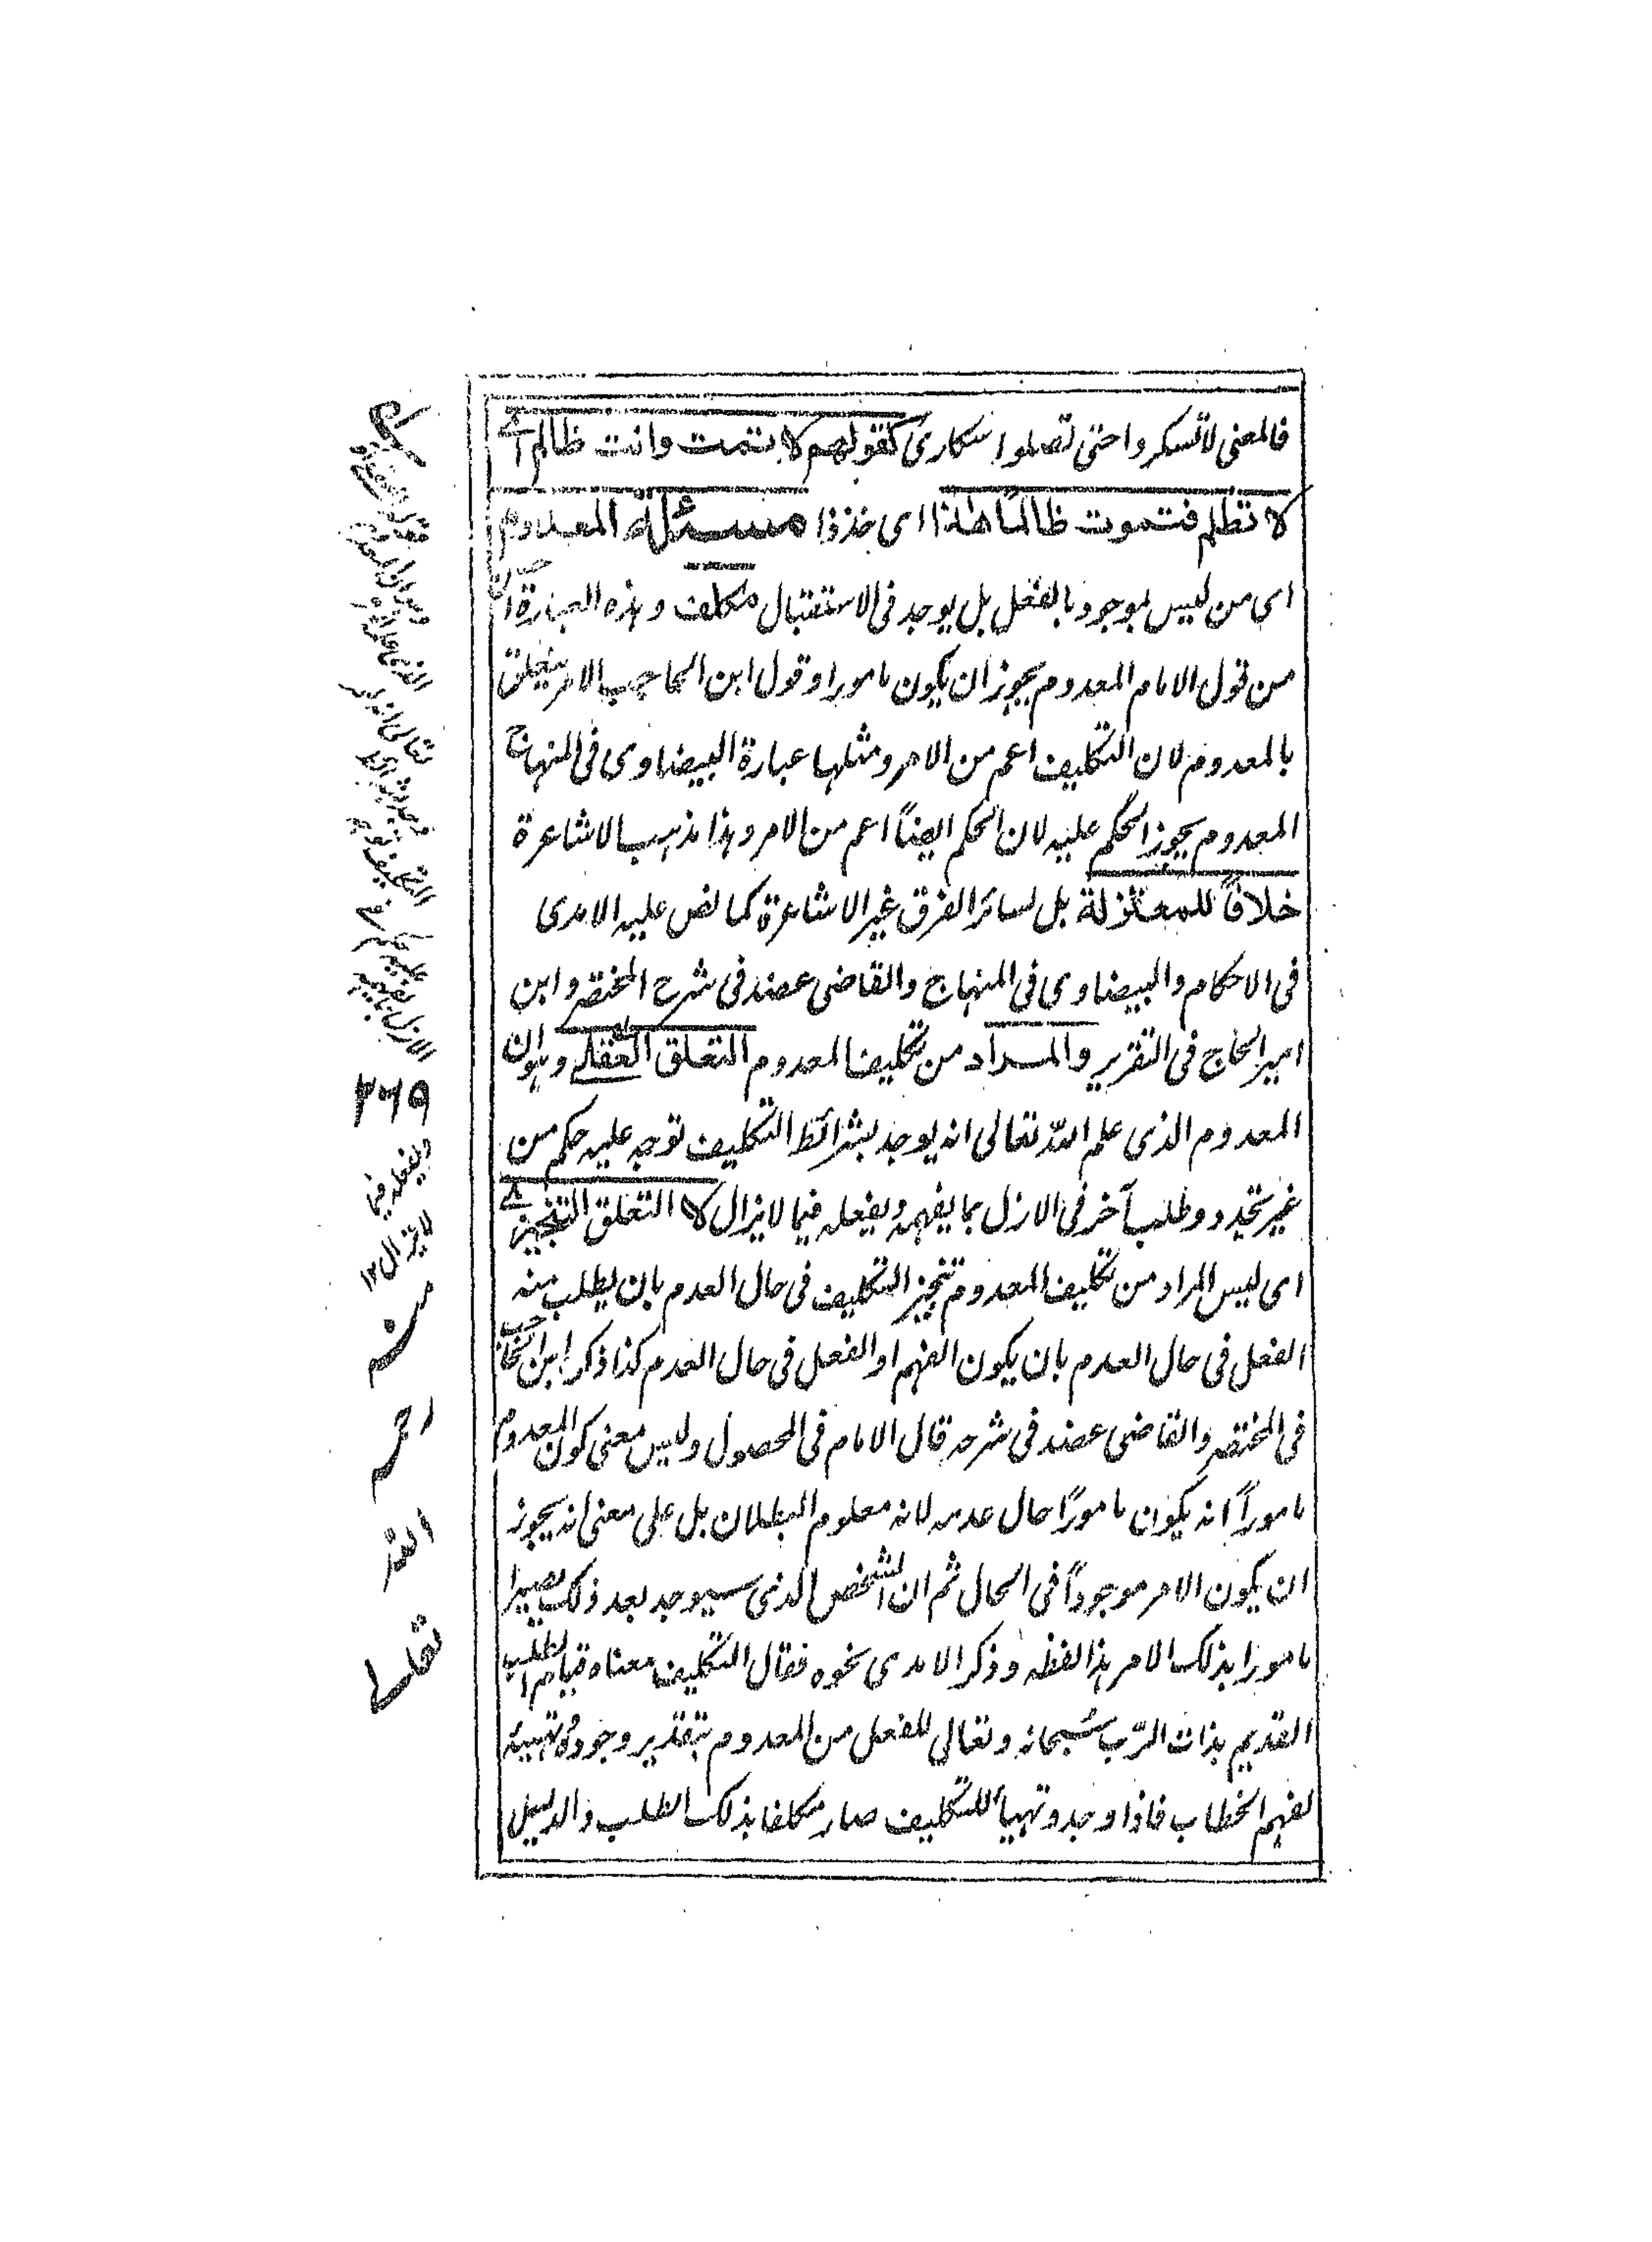 فالمعنى لا تسكروا حتى تصلوا سكارى كقولهم لا تمت وانت ظالم اے
لا تظلم فتموت ظالما هذا اى خذ ذا مسئلة المعدوم
اى من ليس بموجود بالفعل بل يوجد فى الاستقبال مكلف وهذه العبارة احسن
من قول الامام المعدوم يجوز ان يكون مامورا وقول ابن الحاجب الامر يتعلق
بالمعدوم لان التكليف اعم من الامر ومثلها عبارة البيضاوى فى المنهاج
المعدوم يجوز الحكم عليه لان الحكم ايضاً اعم من الامر وهذا مذهب الاشاعرة
خلافاً للمعتزلة بل لسائر الفرق غير الاشاعرة كما نص عليه الامدى
فى الاحكام والبيضاوى فى المنهاج والقاضى عضد فى شرح المختصر وابن
امير الحاج فى التقرير والمراد من تكليف المعدوم التعلق العقلے وهو ان
المعدوم الذى علم الله تعالى انه يوجد بشرائط التكليف توجه عليه حكم من
غير تجدد وطلب آخر فى الازل بما يفهمه ويفعله فيما لا يزال لا التعلق التنجيزے
اى ليس المراد من تكليف المعدوم تنجيز التكليف فى حال العدم بان يطلب منه
الفعل فى حال العدم بان يكون الفهم او الفعل فى حال العدم كذا ذكر ابن الحاجب
فى المختصر والقاضى عضد فى شرحه قال الامام فى المحصول وليس معنى كون المعدوم
ماموراً انه يكون ماموراً حال عدمه لانه معلوم البطلان بل على معنى انه يجوز
ان يكون الامر موجوداً فى الحال ثم ان الشخص الذى سيوجد بعد ذلك يصير
مامورا بذلك الامر هذا لفظه وذكر الامدى نحوه فقال التكليف معناه قيام الطلب
القديم بذات الرّب سُبحانه وتعالى للفعل من المعدوم بتقدير وجوده وتهيئه
لفهم الخطاب فاذا وجد وتهيأ للتكليف صار مكلفا بذلك الطلب والدليل
۲۶۹
ويفعله فيما
لا يزال ۱۲
منه
رحمه
الله
تعالے